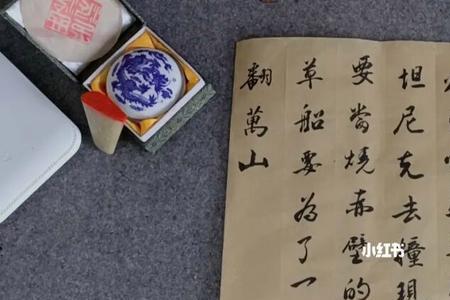 坦尼克去撞現
要當燒赤壁的
草船要為了一
翻萬山
小红书